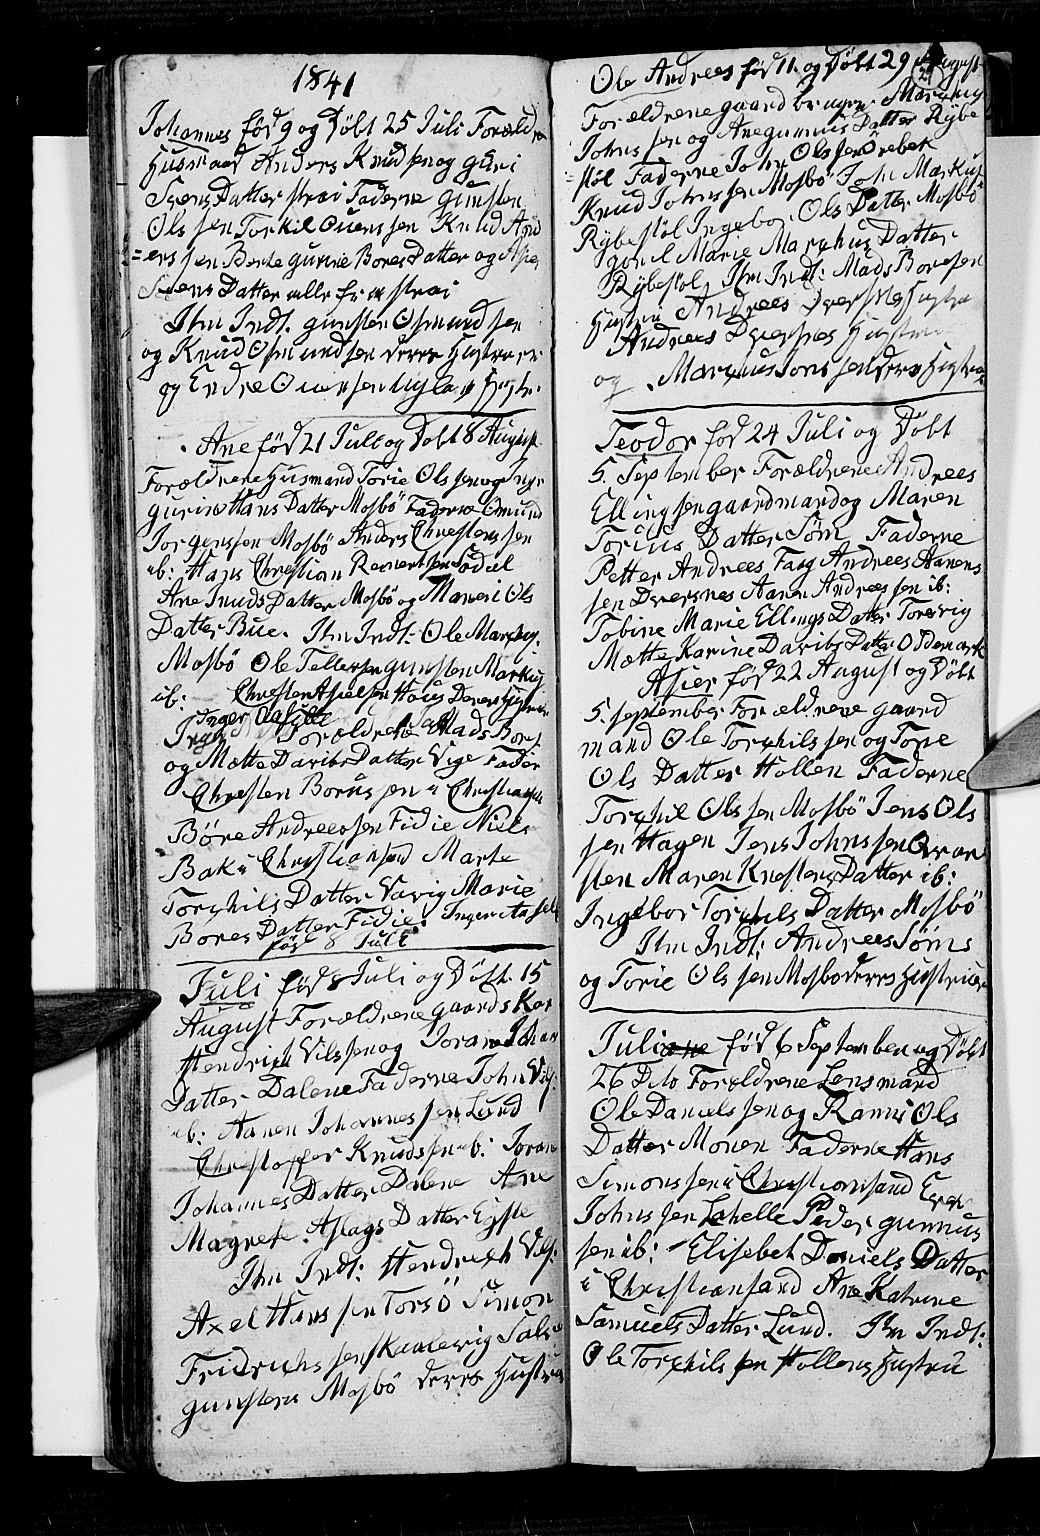 1841
Johannes föd 9 og Döbt 25 Juli Forældre
Husmand Anders Knudsen og guri
Svens Datter strai Faderne gunsten
Olssen Torkil Ouenssen Knud And
=ers sen Berte gurine Bores Datter og Asie
Svens Datter alle fra strai
Ihm Indt. gunsten Osmundsen
og Knud Osmundsen deres Hustruer
og Endre Ouensen Hustr.
Ane föd 21 Juli og Döbt 8 August
Forældrene Husmand Torie Olssen og Inger
gurine Hans Datter Mosbö Faderne Omund
Jorgenssen Mosbö Anders Chrestenssen
ib: Hans Chrestian Reinertsen Södal
Ane Knuds Datter Mosbö og Mareni Ols
Datter Bue. Ihm Indt: Ole Marchus
Mosbö Ole Tellefsen gunsten Markus
ib: Chresten Asielsen Haus Deres Hustruer
Inger Aasille
Forældrene Mads Bors
og Mætte Davids Datter Vige Fader
Chresten Borussen i Christiansa
Böre Andreessen Fidie Niels
Bak i Christiansand Marte
Torchils Datter Varig Marie
Bores Datter Fidie. Inger Aasille
föd 8 Juli
Juli föd 8 Juli og Döbt. 15
August Forældrene gaardskar
Hendrich Vilssen og Joran Johan
Datter Dalene Faderne John Vils:
ib: Aanen Johannessen Lund
Christopfer Knudsen ib: Joran
Johannes Datter Dalene Ane
Magrete Aslags Datter Egste
Ihm Indt: Hendrich Vils:
Axel Hanssen Torsö Simon
Fridrichssen skaalevig Sals
gunstens Mosbö deres Hustruer
Ole Andrees föd 11. og Döbt 29 August
Forældrene gaardbruger Marchus
Johnssen og Anegunnus Datter Rÿbe
stöl Faderne John Olssen Drebek
Knud Johnssen Mosbö John Markus
Rÿbestöl Ingebor Ols Datter Mosbö
gonil Marie Marchus Datter
Rÿbestöl Ihm Indt: Mads Boresen
Hustru Andrees Dversnes Hustru
Andrees Dversnes Hustru
og Marchus Jonssen deres Hustruer
Teodor föd 24 Juli og Döbt
5. September Forældrene Andrees
Ellingsen gaardmand og Maren
Torius Datter Söm Faderne
Petter Andrees Farg Andrees Aanens
sen Dversnes Aanen Andreessen ib:
Tobine Marie Ellings Datter Torsvig
Mætte Karine Davids Datter Oddemark
Asier föd 22 August og Döbt
5. september Forældrene gaard
mand Ole Torchilssen og Torie
Ols Datter Hollen Faderne
Torchil Olssen Mosbö Jens Ols
sen Hagen Jens Johnssen Qvar
sten Maren Knestens Datter ib:
Ingebor Torchils Datter Mosbö
Ihm Indt: Andrees Söms
og Torie Olssen Mosbö deres Hustruer
Juliane föd 6 September og Döbt
26 Dito Forældrene Lensmand
Ole Danielssen og Ranni Ols
Datter Monen Faderne Hans
Simonssen i Christiansand Even
Johnssen Lahelle Peder gunnus
sen ib: Elisebet Daniels Datter
i Christiansand Ane Katrine
Samuels Datter Lund. Ihm Indt:
Ole Torchilssen Hollens Hustru